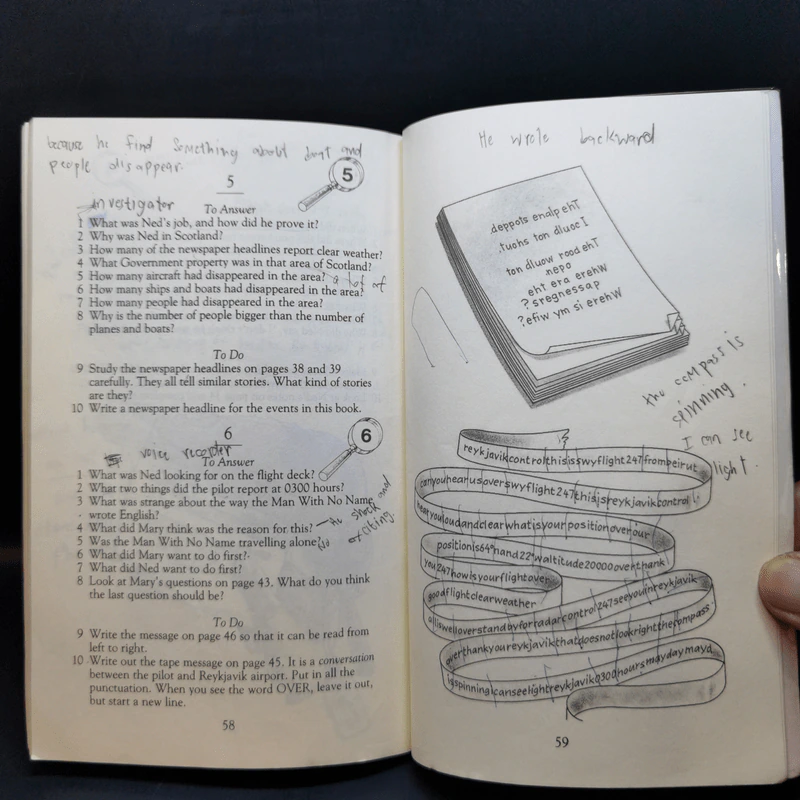 because he find something about boat and
people disappear.
5
5
investigator
To Answer
1 What was Ned's job, and how did he prove it?
2 Why was Ned in Scotland?
3 How many of the newspaper headlines report clear weather?
4 What Government property was in that area of Scotland?
5 How many aircraft had disappeared in the area?
a lot of
6 How many ships and boats had disappeared in the area?
7 How many people had disappeared in the area?
8 Why is the number of people bigger than the number of
planes and boats?
To Do
9 Study the newspaper headlines on pages 38 and 39
carefully. They all tell similar stories. What kind of stories
are they?
10 Write a newspaper headline for the events in this book.
6
6
voice recorter
To Answer
1 What was Ned looking for on the flight deck?
2 What two things did the pilot report at 0300 hours?
3 What was strange about the way the Man With No Name
wrote English?
4 What did Mary think was the reason for this?
he shock and
exciting.
5 Was the Man With No Name travelling alone?
No
6 What did Mary want to do first?
7 What did Ned want to do first?
8 Look at Mary's questions on page 43. What do you think
the last question should be?
To Do
9 Write the message on page 46 so that it can be read from
left to right.
10 Write out the tape message on page 45. It is a conversation
between the pilot and Reykjavik airport. Put in all the
punctuation. When you see the word OVER, leave it out,
but start a new line.
58
He wrote backward
deppots enalp ehT
.tuohs ton dluoc I
ton dluow rood ehT
nepo
eht era erehW
?sregnessap
?efiw ym si erehW
the compass is
spinning.
I can see
light.
reykjavikcontrolthisisswyflight247frombeirut
canyouhearusoverswyflight247thisisreykjavikcontrol
hearyouloudandclearwhatisyourpositionoverour
positionis64°nand22°waltitude20000overthank
you247howisyourflightover
goodflightclearweather
alliswelloverstandbyforradarcontrol247seeyouinreykjavik
overthankyoureykjavikthatdoesnotlookrightthecompass
isspinningicanseelightreykjavik0300hoursmaydaymayd
59